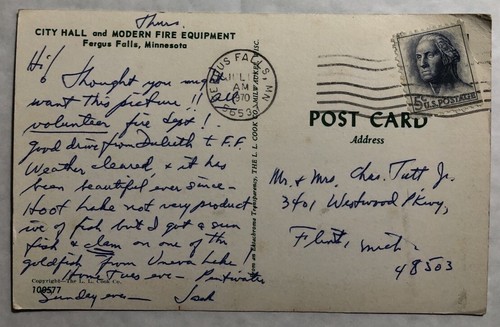 Thurs.
CITY HALL and MODERN FIRE EQUIPMENT
Fergus Falls, Minnesota
Hi!
Thought you might
want this picture!! all
volunteer fire dept!
good drive from Duluth t F.F.
Weather cleared, & it has
been beautiful ever since -
Hoot Lake not very product
ive of fish but I got a sun
fish & clam on one of the
goldfish from Lake!
Home Tues eve - Pentwater
Sunday eve -
Copyright—The L. L. Cook Co.
100577
FERGUS FALLS, MN
JUL
AM
1970
5653
THE L. L. COOK CO., MILWAUKEE, WISC.
5¢ U.S. POSTAGE
POST CARD
Address
Mr. & Mrs. Chas. Tutt Jr.
3401 Westwood Pkwy,
Flint, Mich.
48503